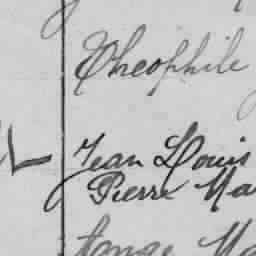 Théophile
Jean Louis
Pierre Ma